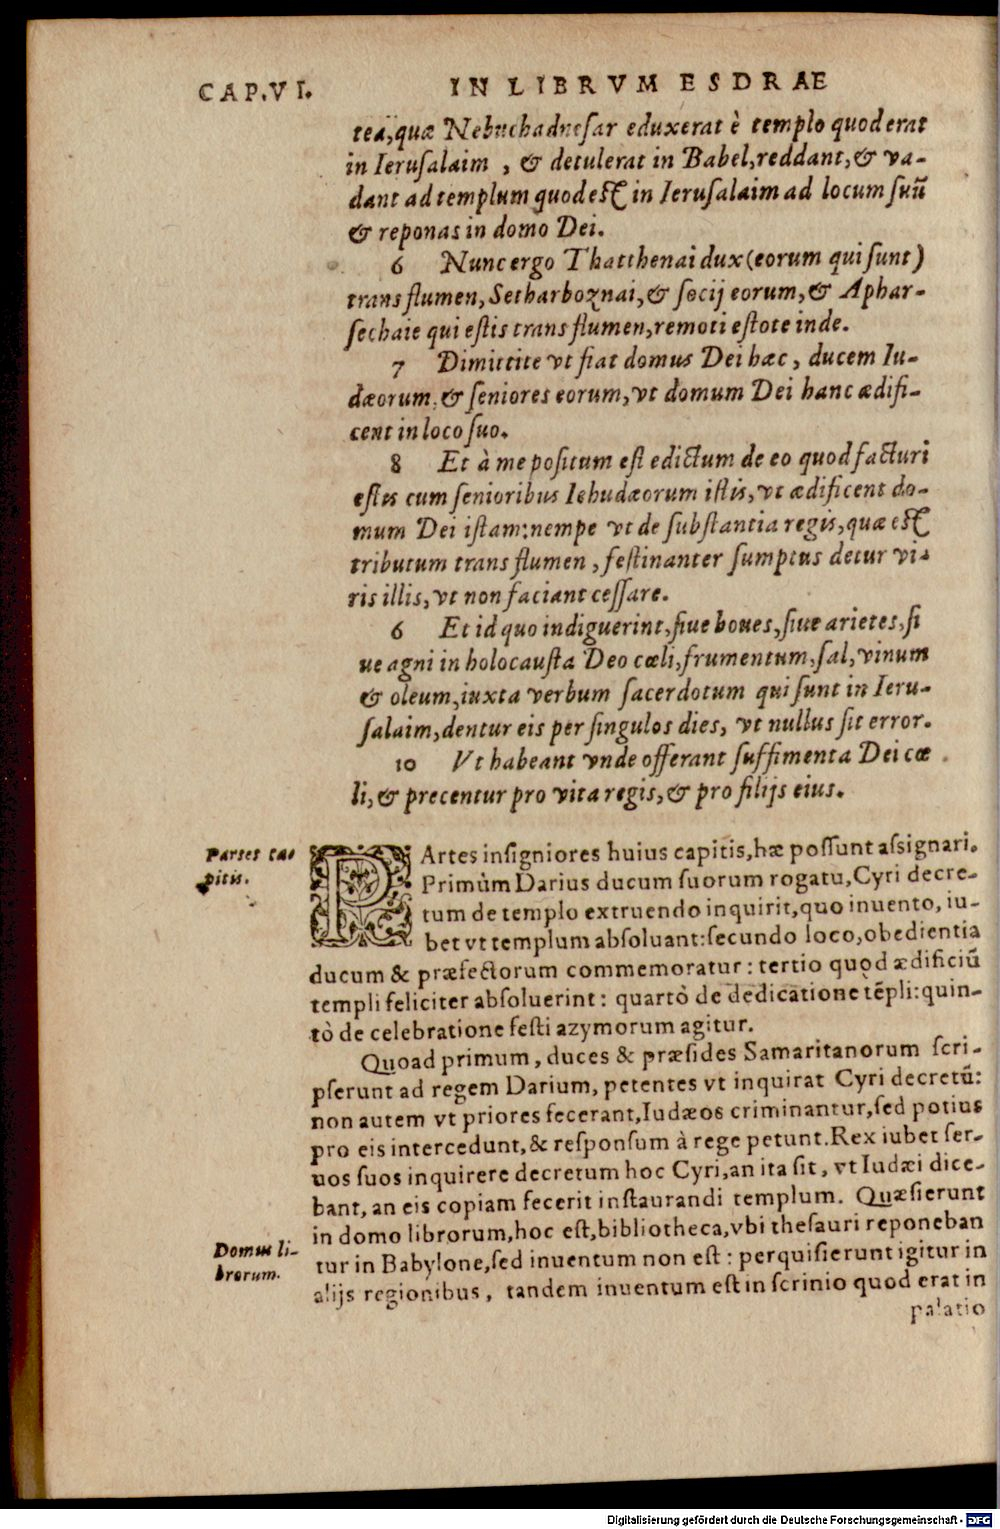 CAP.VI. IN LIBRVM ESDRAE
tea,quæ Nebuchadnesar eduxerat è templo quod erat
in Ierusalaim , & detulerat in Babel,reddant,& va-
dant ad templum quod est in Ierusalaim ad locum suũ
& reponas in domo Dei.
6 Nunc ergo Thatthenai dux (eorum qui sunt)
trans flumen, Setharboznai,& socij eorum,& Aphar-
sechaie qui estis trans flumen,remoti estote inde.
7 Dimittite vt fiat domus Dei hæc, ducem Iu-
dæorum, & seniores eorum,vt domum Dei hanc ædifi-
cent in loco suo.
8 Et à me positum est edictum de eo quod facturi
estis cum senioribus Iehudæorum istis,vt ædificent do-
mum Dei istam:nempe vt de substantia regis,quæ est
tributum trans flumen, festinanter sumptus detur vi-
ris illis,vt non faciant cessare.
6 Et id quo indiguerint,siue boues,siue arietes,si
ue agni in holocausta Deo cœli,frumentum,sal,vinum
& oleum,iuxta verbum sacerdotum qui sunt in Ieru-
salaim,dentur eis per singulos dies, vt nullus sit error.
10 Vt habeant vnde offerant suffimenta Dei cœ
li,& precentur pro vita regis,& pro filijs eius.
Partes ca-
pitis.
PArtes insigniores huius capitis,hæ possunt assignari.
Primùm Darius ducum suorum rogatu,Cyri decre-
tum de templo extruendo inquirit,quo inuento, iu-
bet vt templum absoluant:secundo loco,obedientia
ducum & præfectorum commemoratur : tertio quòd ædificiũ
templi feliciter absoluerint : quartò de dedicatione tẽpli:quin-
tò de celebratione festi azymorum agitur.
Quoad primum, duces & præsides Samaritanorum scri-
pserunt ad regem Darium, petentes vt inquirat Cyri decretũ:
non autem vt priores fecerant,Iudæos criminantur,sed potius
pro eis intercedunt,& responsum à rege petunt.Rex iubet ser-
uos suos inquirere decretum hoc Cyri,an ita sit, vt Iudæi dice-
bant, an eis copiam fecerit instaurandi templum. Quæsierunt
in domo librorum,hoc est,bibliotheca,vbi thesauri reponeban
Domus li-
brorum.
tur in Babylone,sed inuentum non est : perquisierunt igitur in
alijs regionibus, tandem inuentum est in scrinio quod erat in
palatio
Digitalisierung gefördert durch die Deutsche Forschungsgemeinschaft - DFG